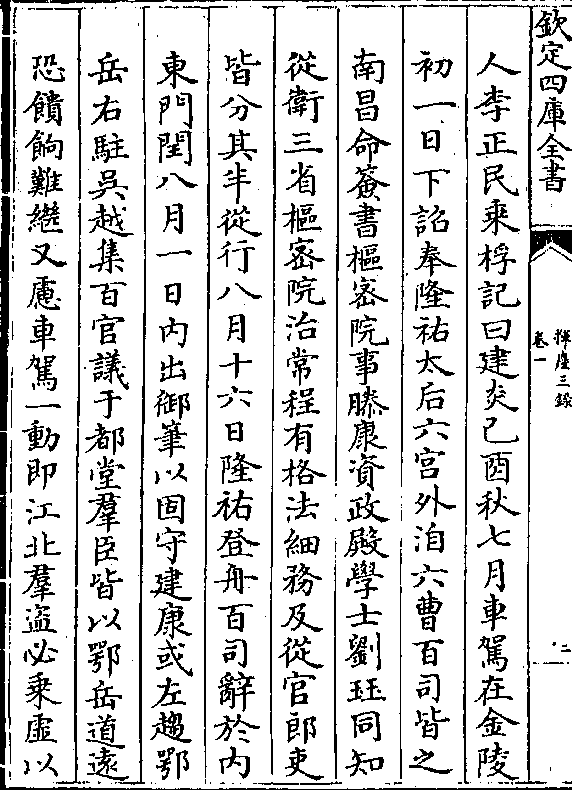 欽定四庫全書
揮麈三錄
卷一
二
人李正民乘桴記曰建炎己酉秋七月車駕在金陵
初一日下詔奉隆祐太后六宮外洎六曹百司皆之
南昌命簽書樞密院事滕康資政殿學士劉珏同知
從衛三省樞密院治常程有格法細務及從官郎吏
皆分其半從行八月十六日隆祐登舟百司辭於内
東門閏八月一日内出御筆以固守建康或左趨鄂
岳右駐吳越集百官議于都堂羣臣皆以鄂岳道遠
恐饋餉難繼又慮車駕一動即江北羣盗必乘虛以